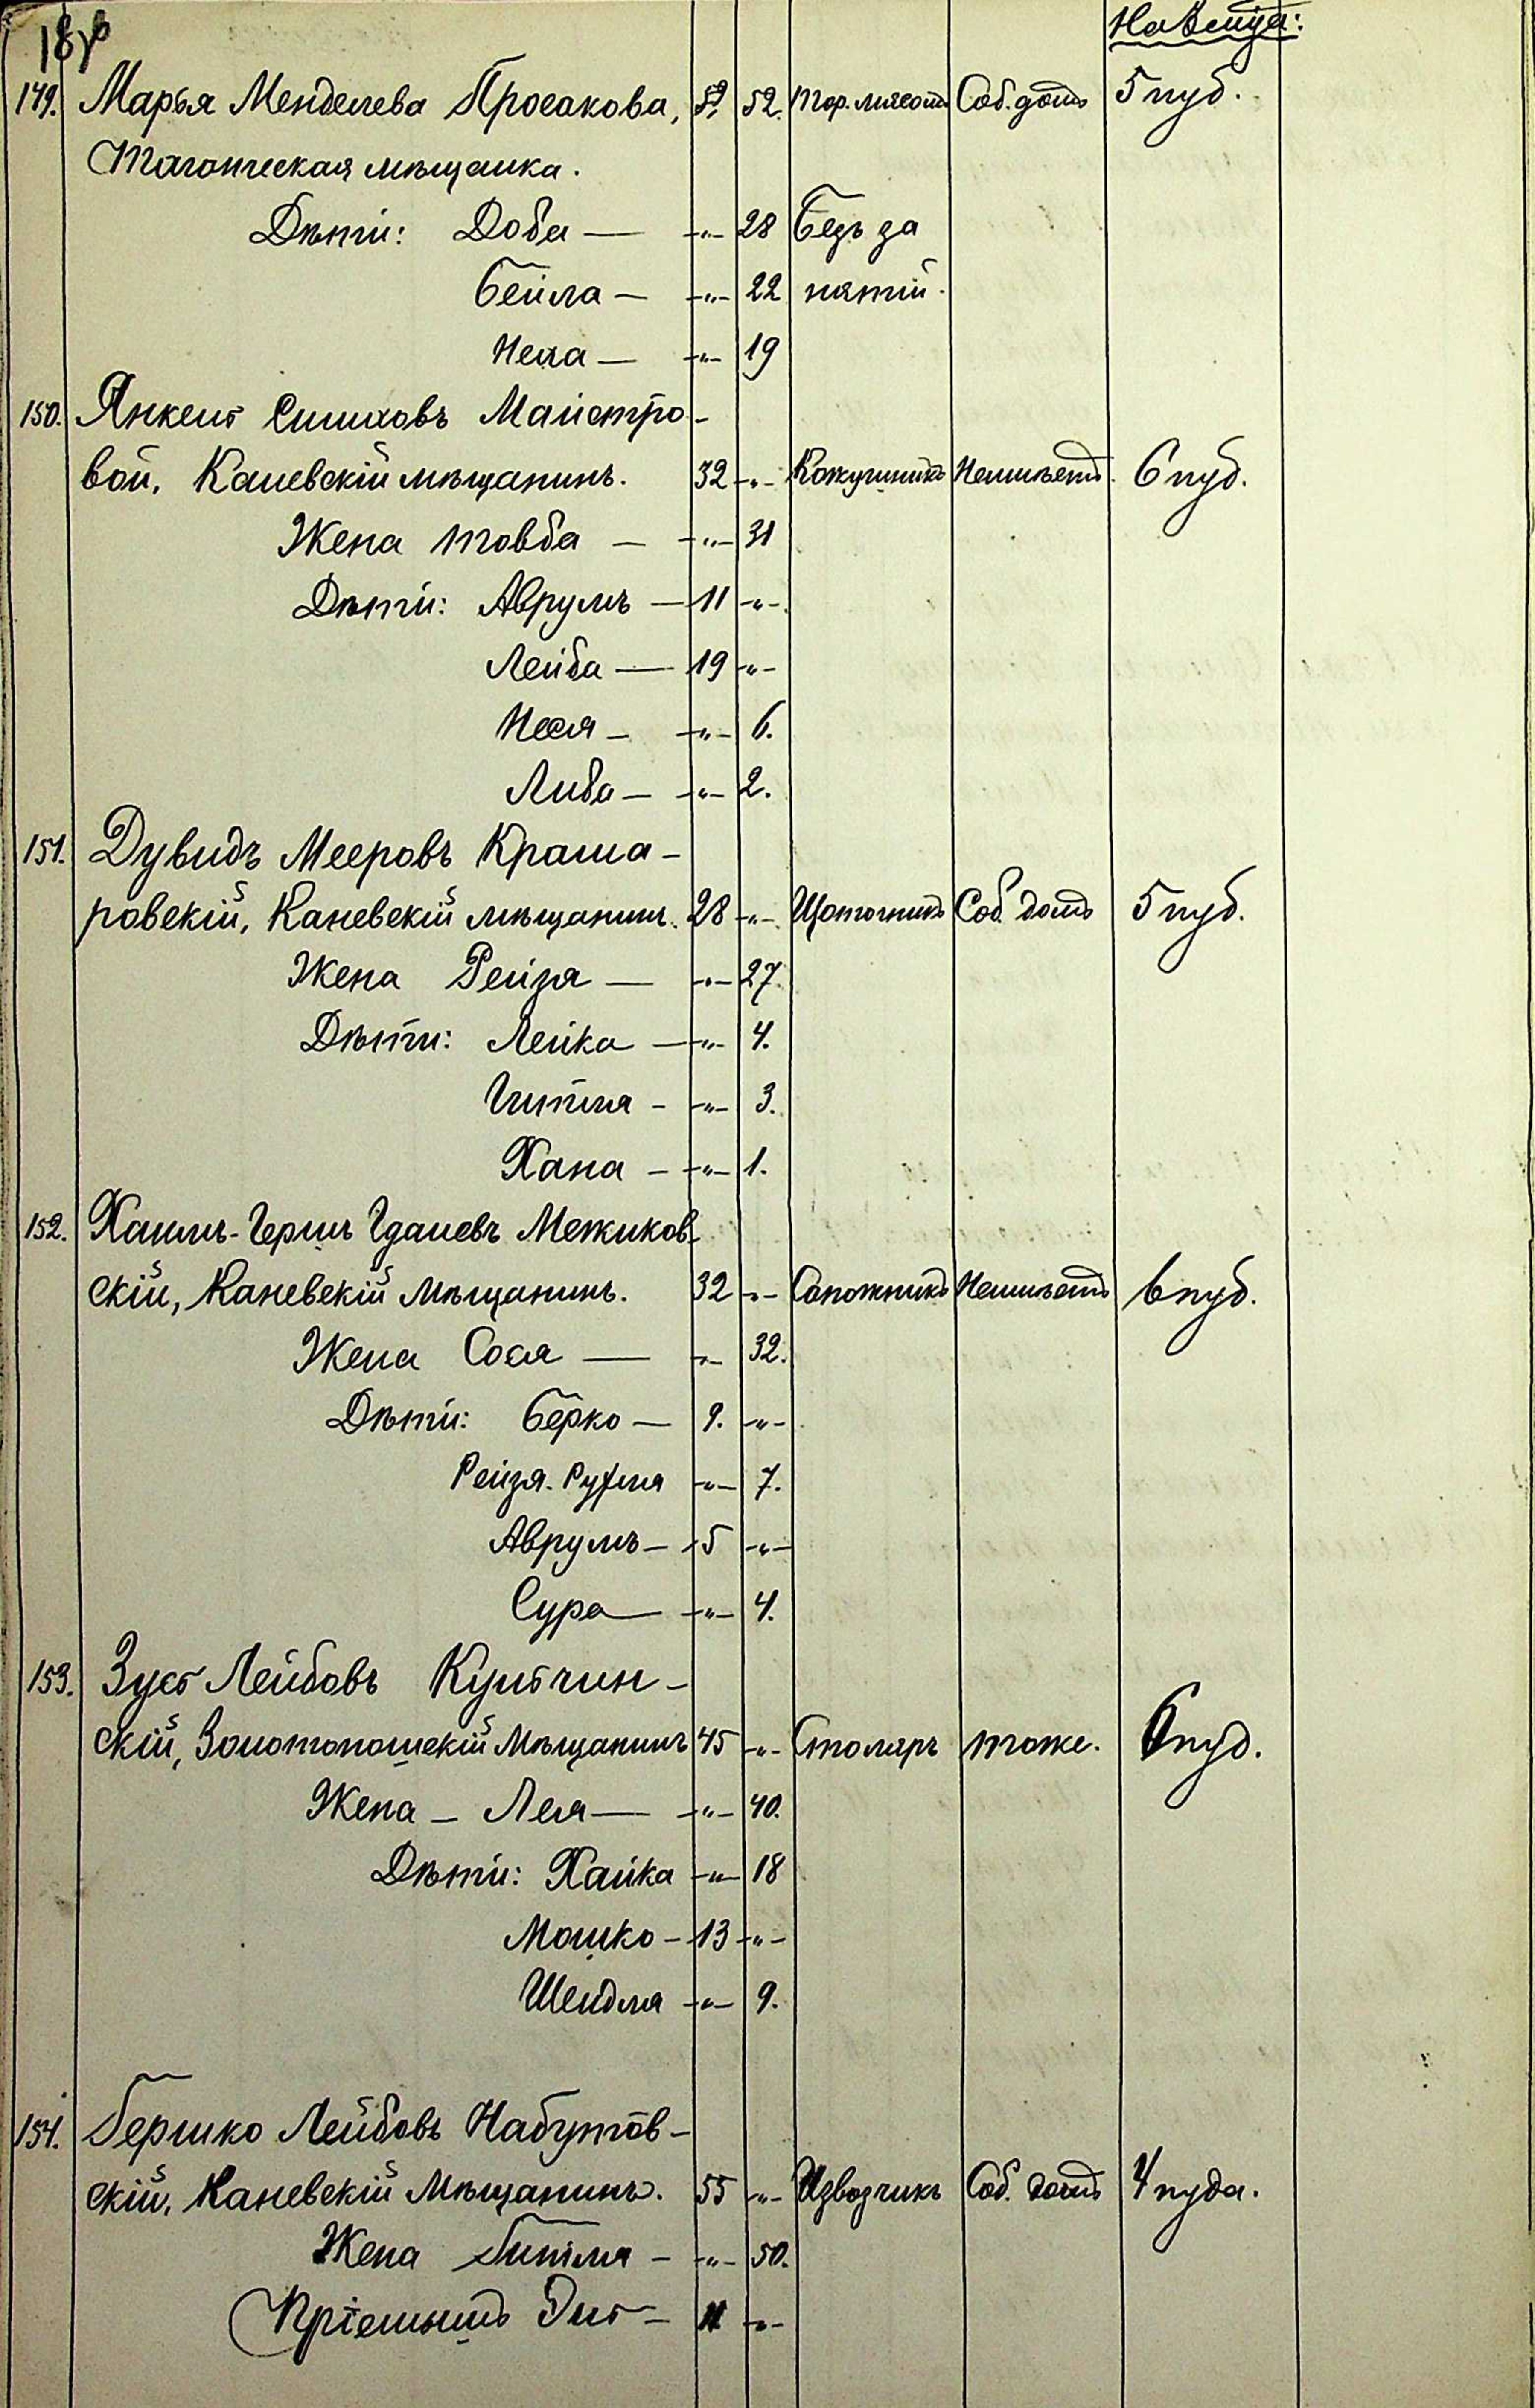 149. Марья Менделева Просакова, 52. Тор. мясомъ Соб. домъ 5 пуд.
мѣщанка.
Дѣти: Доба — -"- 28 Безъ за
Бейла — -"- 22 нятій.
Неха — -"- 19
150. Янкель Симховъ Майстро-
вой, Каневскій мѣщанинъ. 32 -"- Кожушникъ Неимѣетъ. 6 пуд.
Жена Товба — -"- 31
Дѣти: Аврумъ — 11 -"-
Лейба — 19 -"-
Неся — -"- 6.
Либа — -"- 2.
151. Дувидъ Мееровъ Крама-
ровскій, Каневскій мѣщанинъ. 28 -"- Щоточникъ Соб. домъ 5 пуд.
Жена Рейзя — -"- 27.
Дѣти: Лейка — -"- 4.
Гитля - -"- 3.
Хана — -"- 1.
152. Хаимъ-Гершъ Гдалевъ Межиков-
скій, Каневскій Мѣщанинъ. 32 -"- Сапожникъ Неимѣетъ 6 пуд.
Жена Сося — -"- 32.
Дѣти: Берко — 9. -"-
Рейзя-Рухля -"- 7.
Аврумъ — 5 -"-
Сура — -"- 4.
153. Зусь Лейбовъ Кульчин-
скій, Золотоношскій Мѣщанинъ 45 -"- Столяръ тоже. 6 пуд.
Жена — Лея — -"- 40.
Дѣти: Хайка -"- 18
Мошко — 13 -"-
Шейдля -"- 9.
154. Гершко Лейбовъ Набутов-
скій, Каневскій Мѣщанинъ. 55 -"- Извозчикъ Соб. домъ 4 пуда.
Жена Гитля — -"- 50.
Пріемышъ Эль — 11 -"-